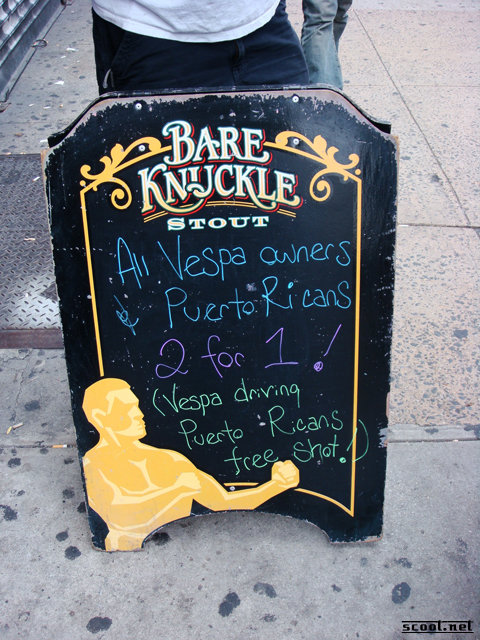 BARE
KNUCKLE
STOUT
All Vespa owners
& Puerto Ricans
2 for 1!
(Vespa driving
Puerto Ricans
free shot!)
scoot.net